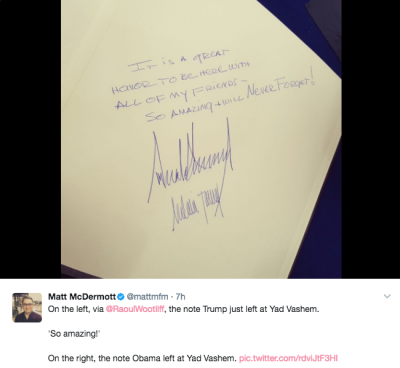 IT IS A GREAT
HONOR TO BE HERE WITH
ALL OF MY FRIENDS -
SO AMAZING + WILL NEVER FORGET!
Donald Trump
Melania Trump
Matt McDermott @mattmfm · 7h
On the left, via @RaoulWootliff, the note Trump just left at Yad Vashem.
'So amazing!'
On the right, the note Obama left at Yad Vashem. pic.twitter.com/rdviJtF3HI